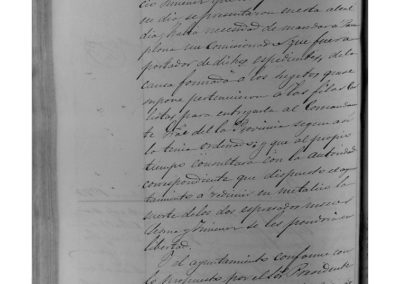 su dia, se presentaron en esta alcal
dia, habia necesidad de mandar á Pam
plona un Comisionado que fuera
portador de dichos espedientes, de la
causa formada á los sujetos que se
supone pertenecieron á las filas Car
listas, para entregarla al Comandan
te Gral de la Provincia segun asi
lo tenia ordenado, y que al propio
tiempo consultara con la autoridad
correspondiente que dispuesto el ayun
tamiento á redimir en metalico la
suerte de los dos espresados mozos
Serna y Jimenez se les pondria en
libertad.
Y el ayuntamiento conforme con
lo propuesto por el Sor Presidente